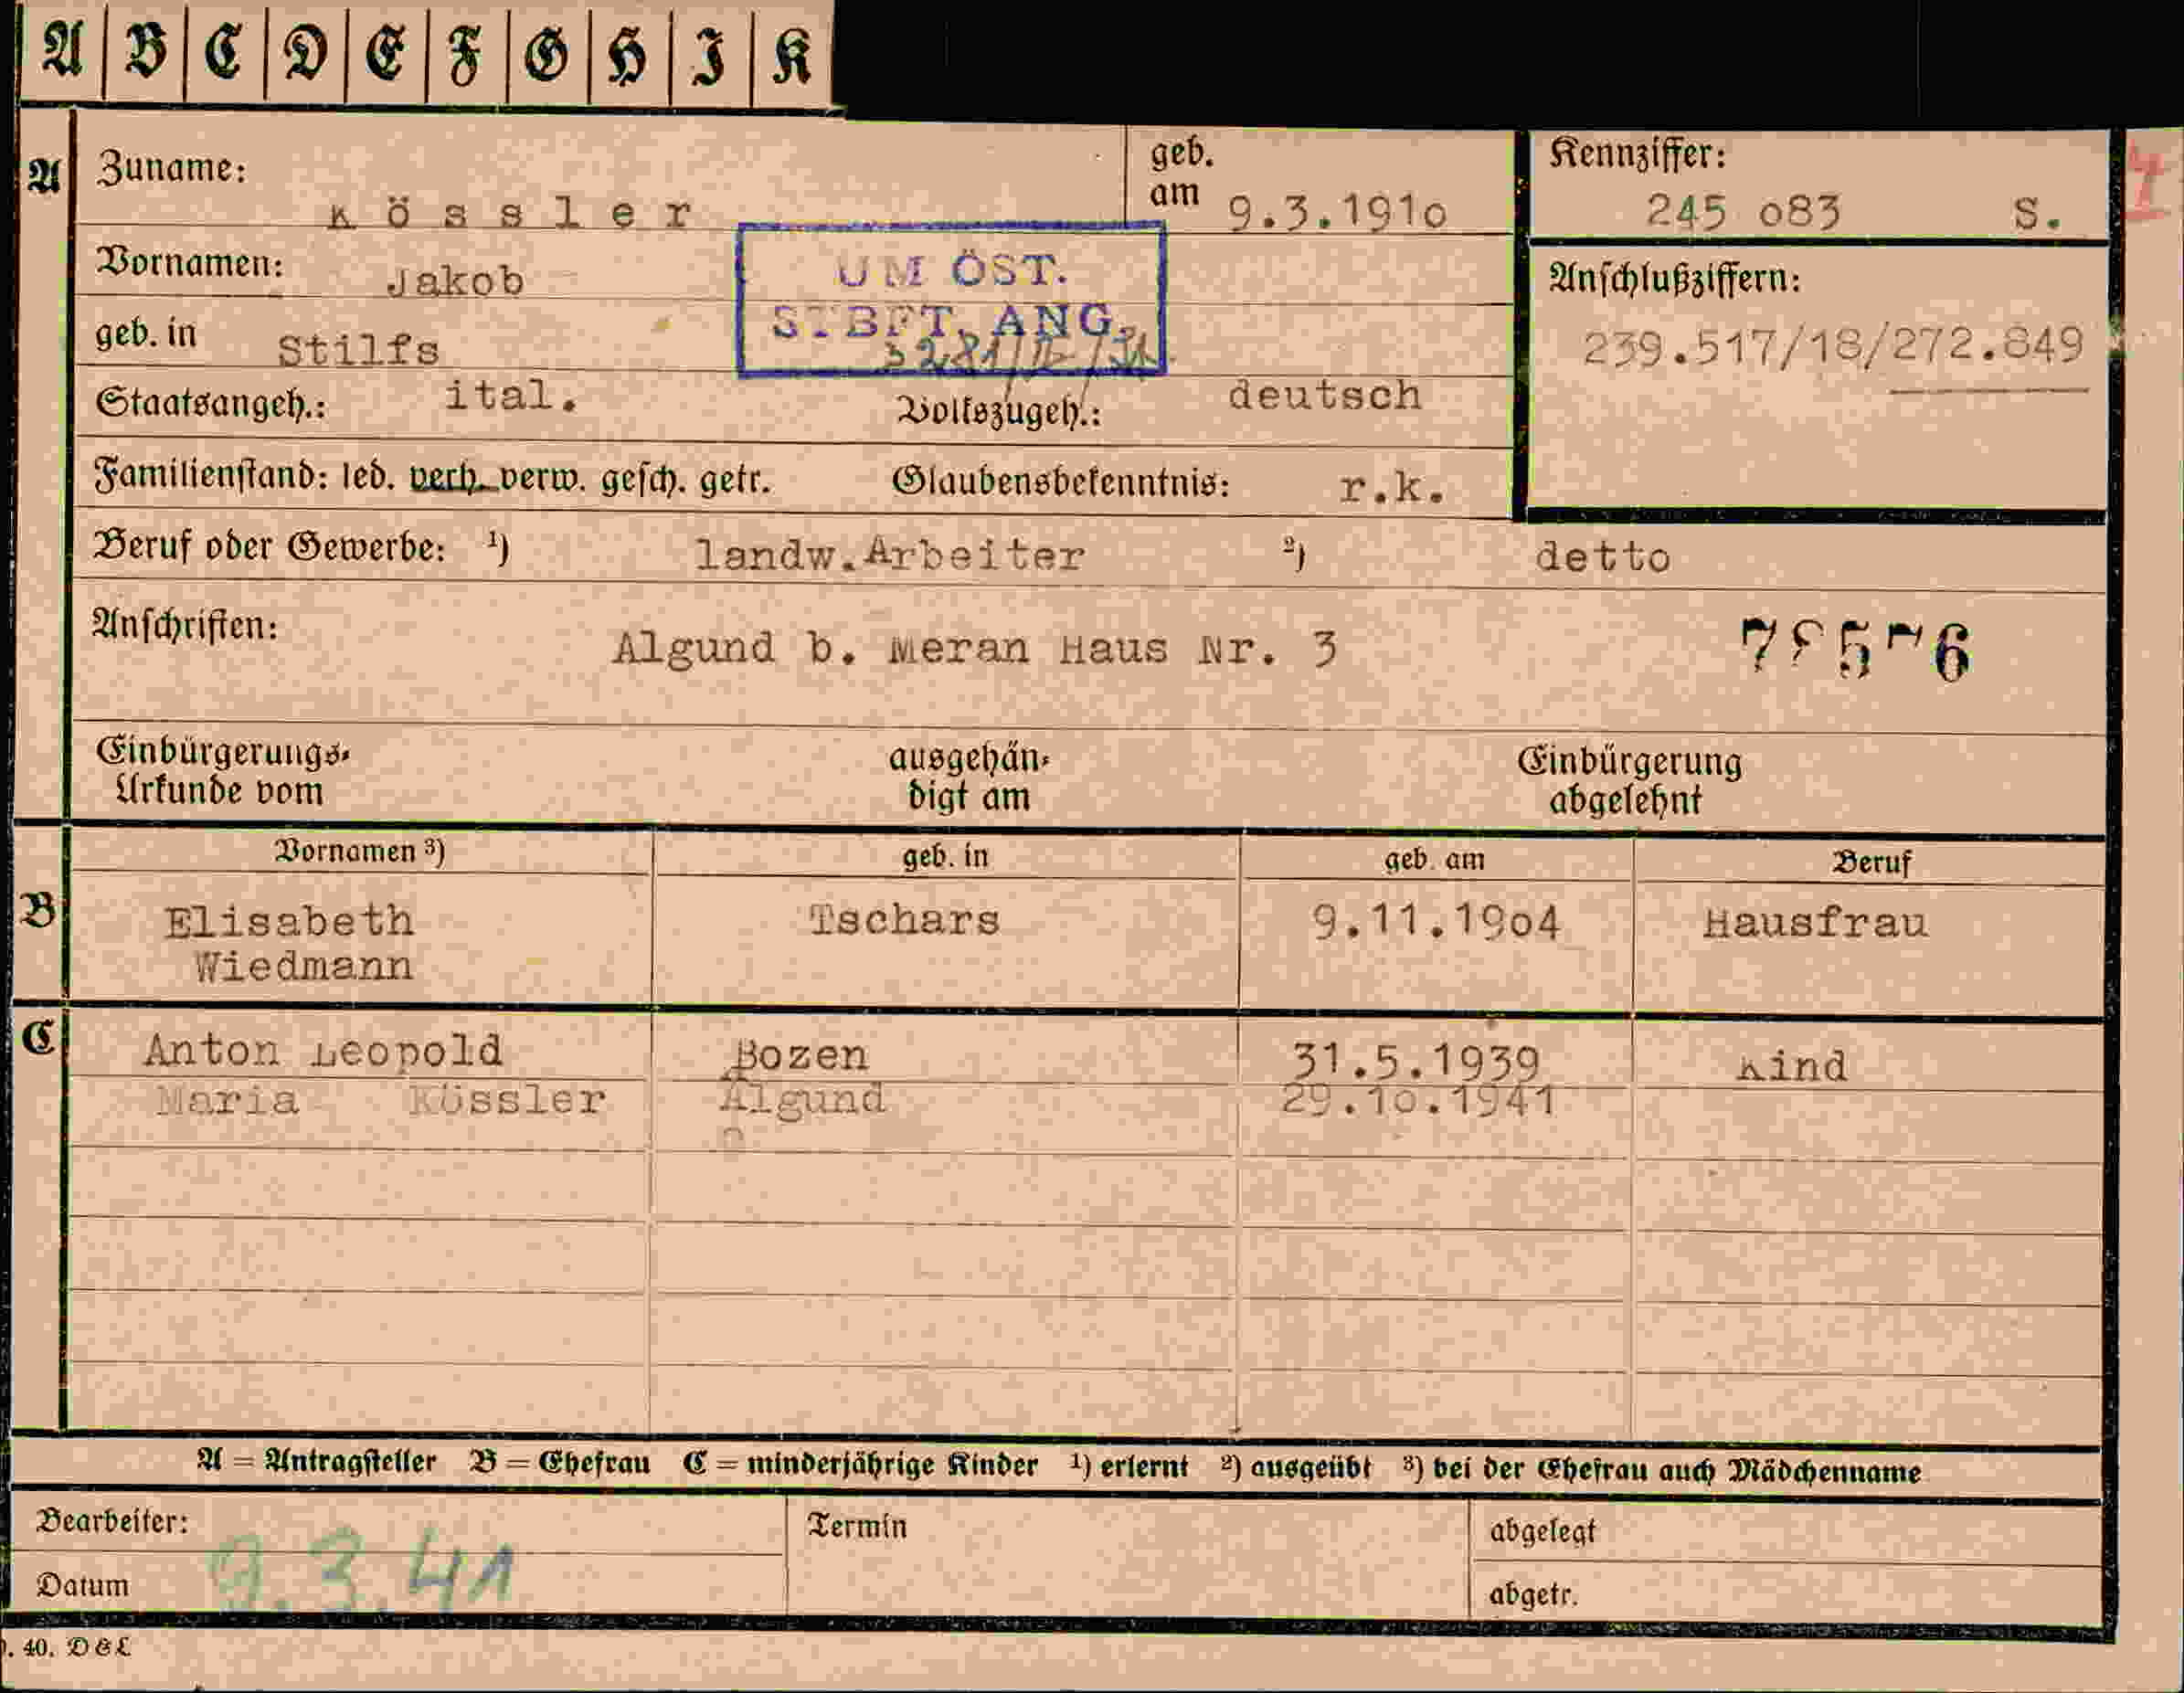 A B C D E F G H I K
A Zuname: geb. am Kennziffer:
Kössler 9.3.1910 245 083 S.
Vornamen: Jakob UM ÖST. Anschlußziffern:
STBFT. ANG.
geb. in Stilfs 239.517/18/272.849
Staatsangeh.: ital. Volkszugeh.: deutsch
Familienstand: led. verh. verw. gesch. getr. Glaubensbekenntnis: r.k.
Beruf oder Gewerbe: 1) landw.Arbeiter 2) detto
Anschriften:
Algund b. Meran Haus Nr. 3
Einbürgerungs- ausgehän- Einbürgerung
Urkunde vom digt am abgelehnt
Vornamen 3) geb. in geb. am Beruf
B Elisabeth Tschars 9.11.1904 Hausfrau
Wiedmann
C Anton Leopold Bozen 31.5.1939 Kind
Maria Kössler Algund 29.10.1941
A = Antragsteller B = Ehefrau C = minderjährige Kinder 1) erlernt 2) ausgeübt 3) bei der Ehefrau auch Mädchenname
Bearbeiter: Termin abgelegt
Datum 9.3.41 abgetr.
. 40. D & L